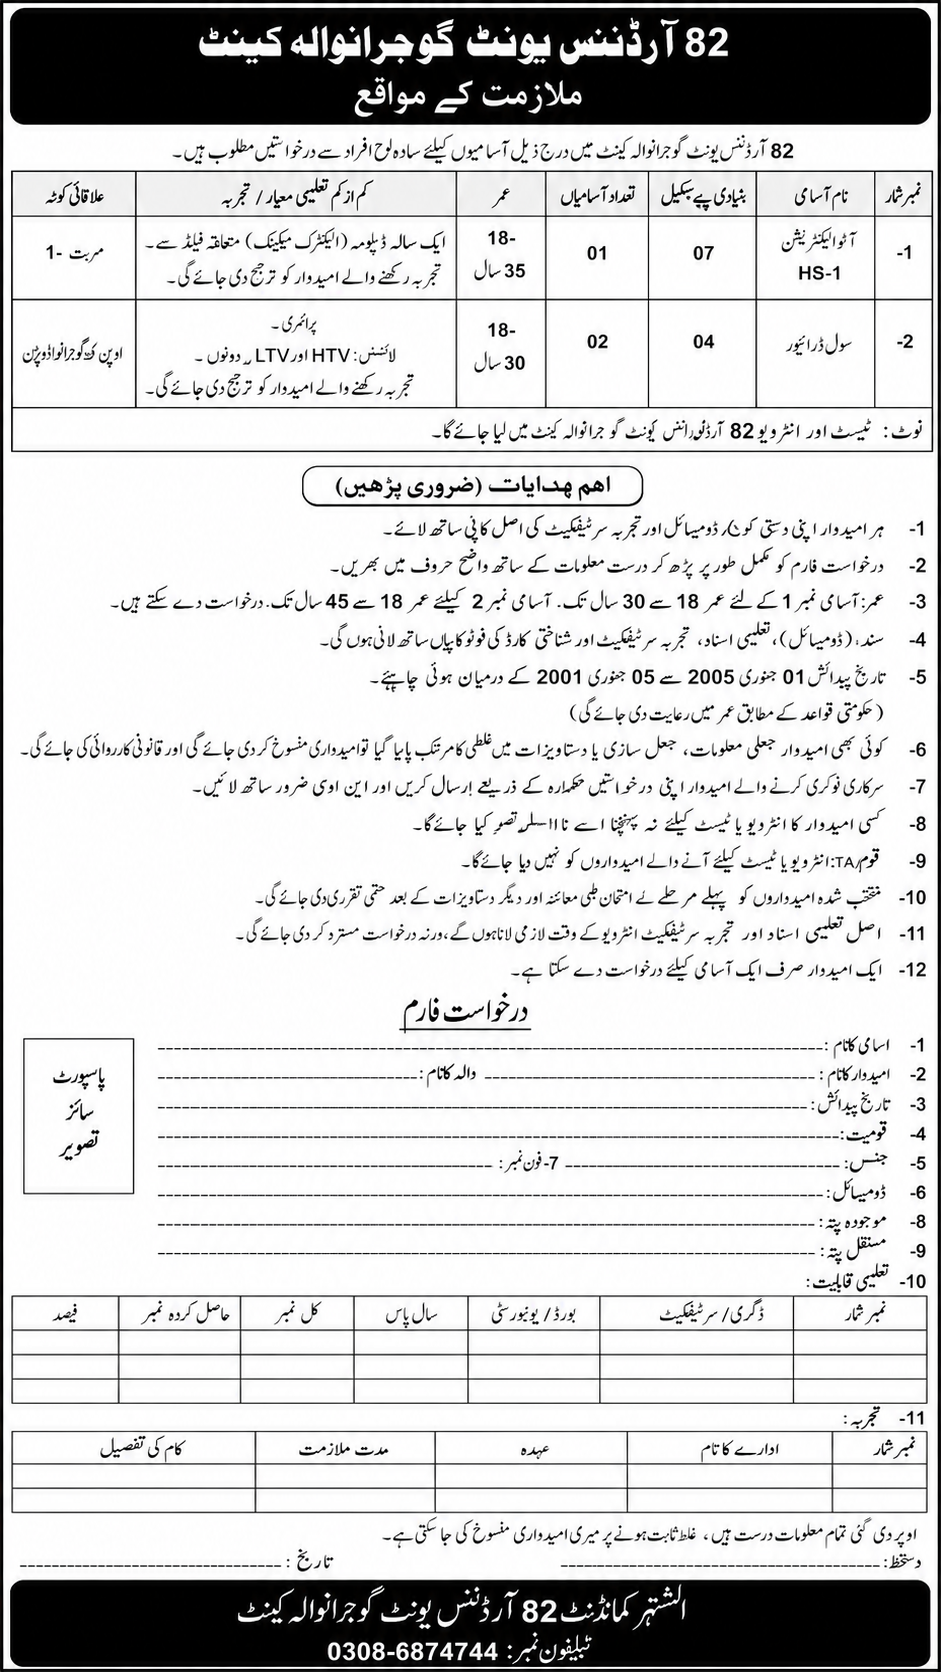 82 آرڈننس یونٹ گوجرانوالہ کینٹ
ملازمت کے مواقع
82 آرڈننس یونٹ گوجرانوالہ کینٹ میں درج ذیل آسامیوں کیلئے سادہ لوح افراد سے درخواستیں مطلوب ہیں۔
نمبر شمار نام آسامی بنیادی پے سکیل تعداد آسامیاں عمر کم از کم تعلیمی معیار / تجربہ علاقائی کوٹہ
1- آٹو الیکٹریشن HS-1 07 01 18-35 سال ایک سالہ ڈپلومہ (الیکٹرک میکینک) متعلقہ فیلڈ سے۔ مربت -1
تجربہ رکھنے والے امیدوار کو ترجیح دی جائے گی۔
2- سول ڈرائیور 04 02 18-30 سال پرائمری۔
لائسنس: HTV اور LTV دونوں۔
تجربہ رکھنے والے امیدوار کو ترجیح دی جائے گی۔
نوٹ: ٹیسٹ اور انٹرویو 82 یونٹ گوجرانوالہ کینٹ میں لیا جائے گا۔
اہم ہدایات (ضروری پڑھیں)
1- ہر امیدوار اپنی دستی ڈومیسائل اور تجربہ سرٹیفکیٹ کی اصل کاپی ساتھ لائے۔
2- درخواست فارم کو مکمل طور پر پڑھ کر درست معلومات کے ساتھ واضح حروف میں بھریں۔
3- عمر: آسامی نمبر 1 کے لئے عمر 18 سے 30 سال تک۔ آسامی نمبر 2 کیلئے عمر 18 سے 45 سال تک۔ درخواست دے سکتے ہیں۔
4- سند: (ڈومیسائل)، تعلیمی اسناد، تجربہ سرٹیفکیٹ اور شناختی کارڈ کی فوٹو کاپیاں ساتھ لانی ہوں گی۔
5- تاریخ پیدائش 01 جنوری 2005 سے 05 جنوری 2001 کے درمیان ہونی چاہیئے۔
(حکومتی قواعد کے مطابق عمر میں رعایت دی جائے گی)
6- کوئی بھی امیدوار جعلی معلومات، جعل سازی یا دستاویزات میں غلطی کا مرتکب پایا گیا تو امیدواری منسوخ کر دی جائے گی اور قانونی کارروائی کی جائے گی۔
7- سرکاری نوکری کرنے والے امیدوار اپنی درخواستیں کے ذریعے ارسال کریں اور این اوسی ضرور ساتھ لائیں۔
8- کسی امیدوار کا انٹرویو یا ٹیسٹ کیلئے نہ پہنچنا اسے کیا جائے گا۔
9- قوم/TA: انٹرویو یا ٹیسٹ کیلئے آنے والے امیدواروں کو نہیں دیا جائے گا۔
10- منتخب شدہ امیدواروں کو پہلے مرحلے امتحان طبی معائنہ اور دیگر دستاویزات کے بعد حتمی تقرری دی جائے گی۔
11- اصل تعلیمی اسناد اور تجربہ سرٹیفکیٹ انٹرویو کے وقت لازمی لانا ہوں گے، ورنہ درخواست مسترد کر دی جائے گی۔
12- ایک امیدوار صرف ایک آسامی کیلئے درخواست دے سکتا ہے۔
درخواست فارم
پاسپورٹ
سائز
تصویر
1- اسامی کا نام:
2- امیدوار کا نام: والد کا نام:
3- تاریخ پیدائش:
4- قومیت:
5- جنس: 7- فون نمبر:
6- ڈومیسائل:
8- موجودہ پتہ:
9- مستقل پتہ:
10- تعلیمی قابلیت:
نمبر شمار ڈگری / سرٹیفکیٹ بورڈ / یونیورسٹی سال پاس کل نمبر حاصل کردہ نمبر فیصد
11- تجربہ:
نمبر شمار ادارے کا نام عہدہ مدت ملازمت کام کی تفصیل
اوپر دی گئی تمام معلومات درست ہیں، غلط ثابت ہونے پر میری امیدواری منسوخ کی جا سکتی ہے۔
دستخط: تاریخ:
المشتہر کمانڈنٹ 82 آرڈننس یونٹ گوجرانوالہ کینٹ
ٹیلیفون نمبر: 0308-6874744